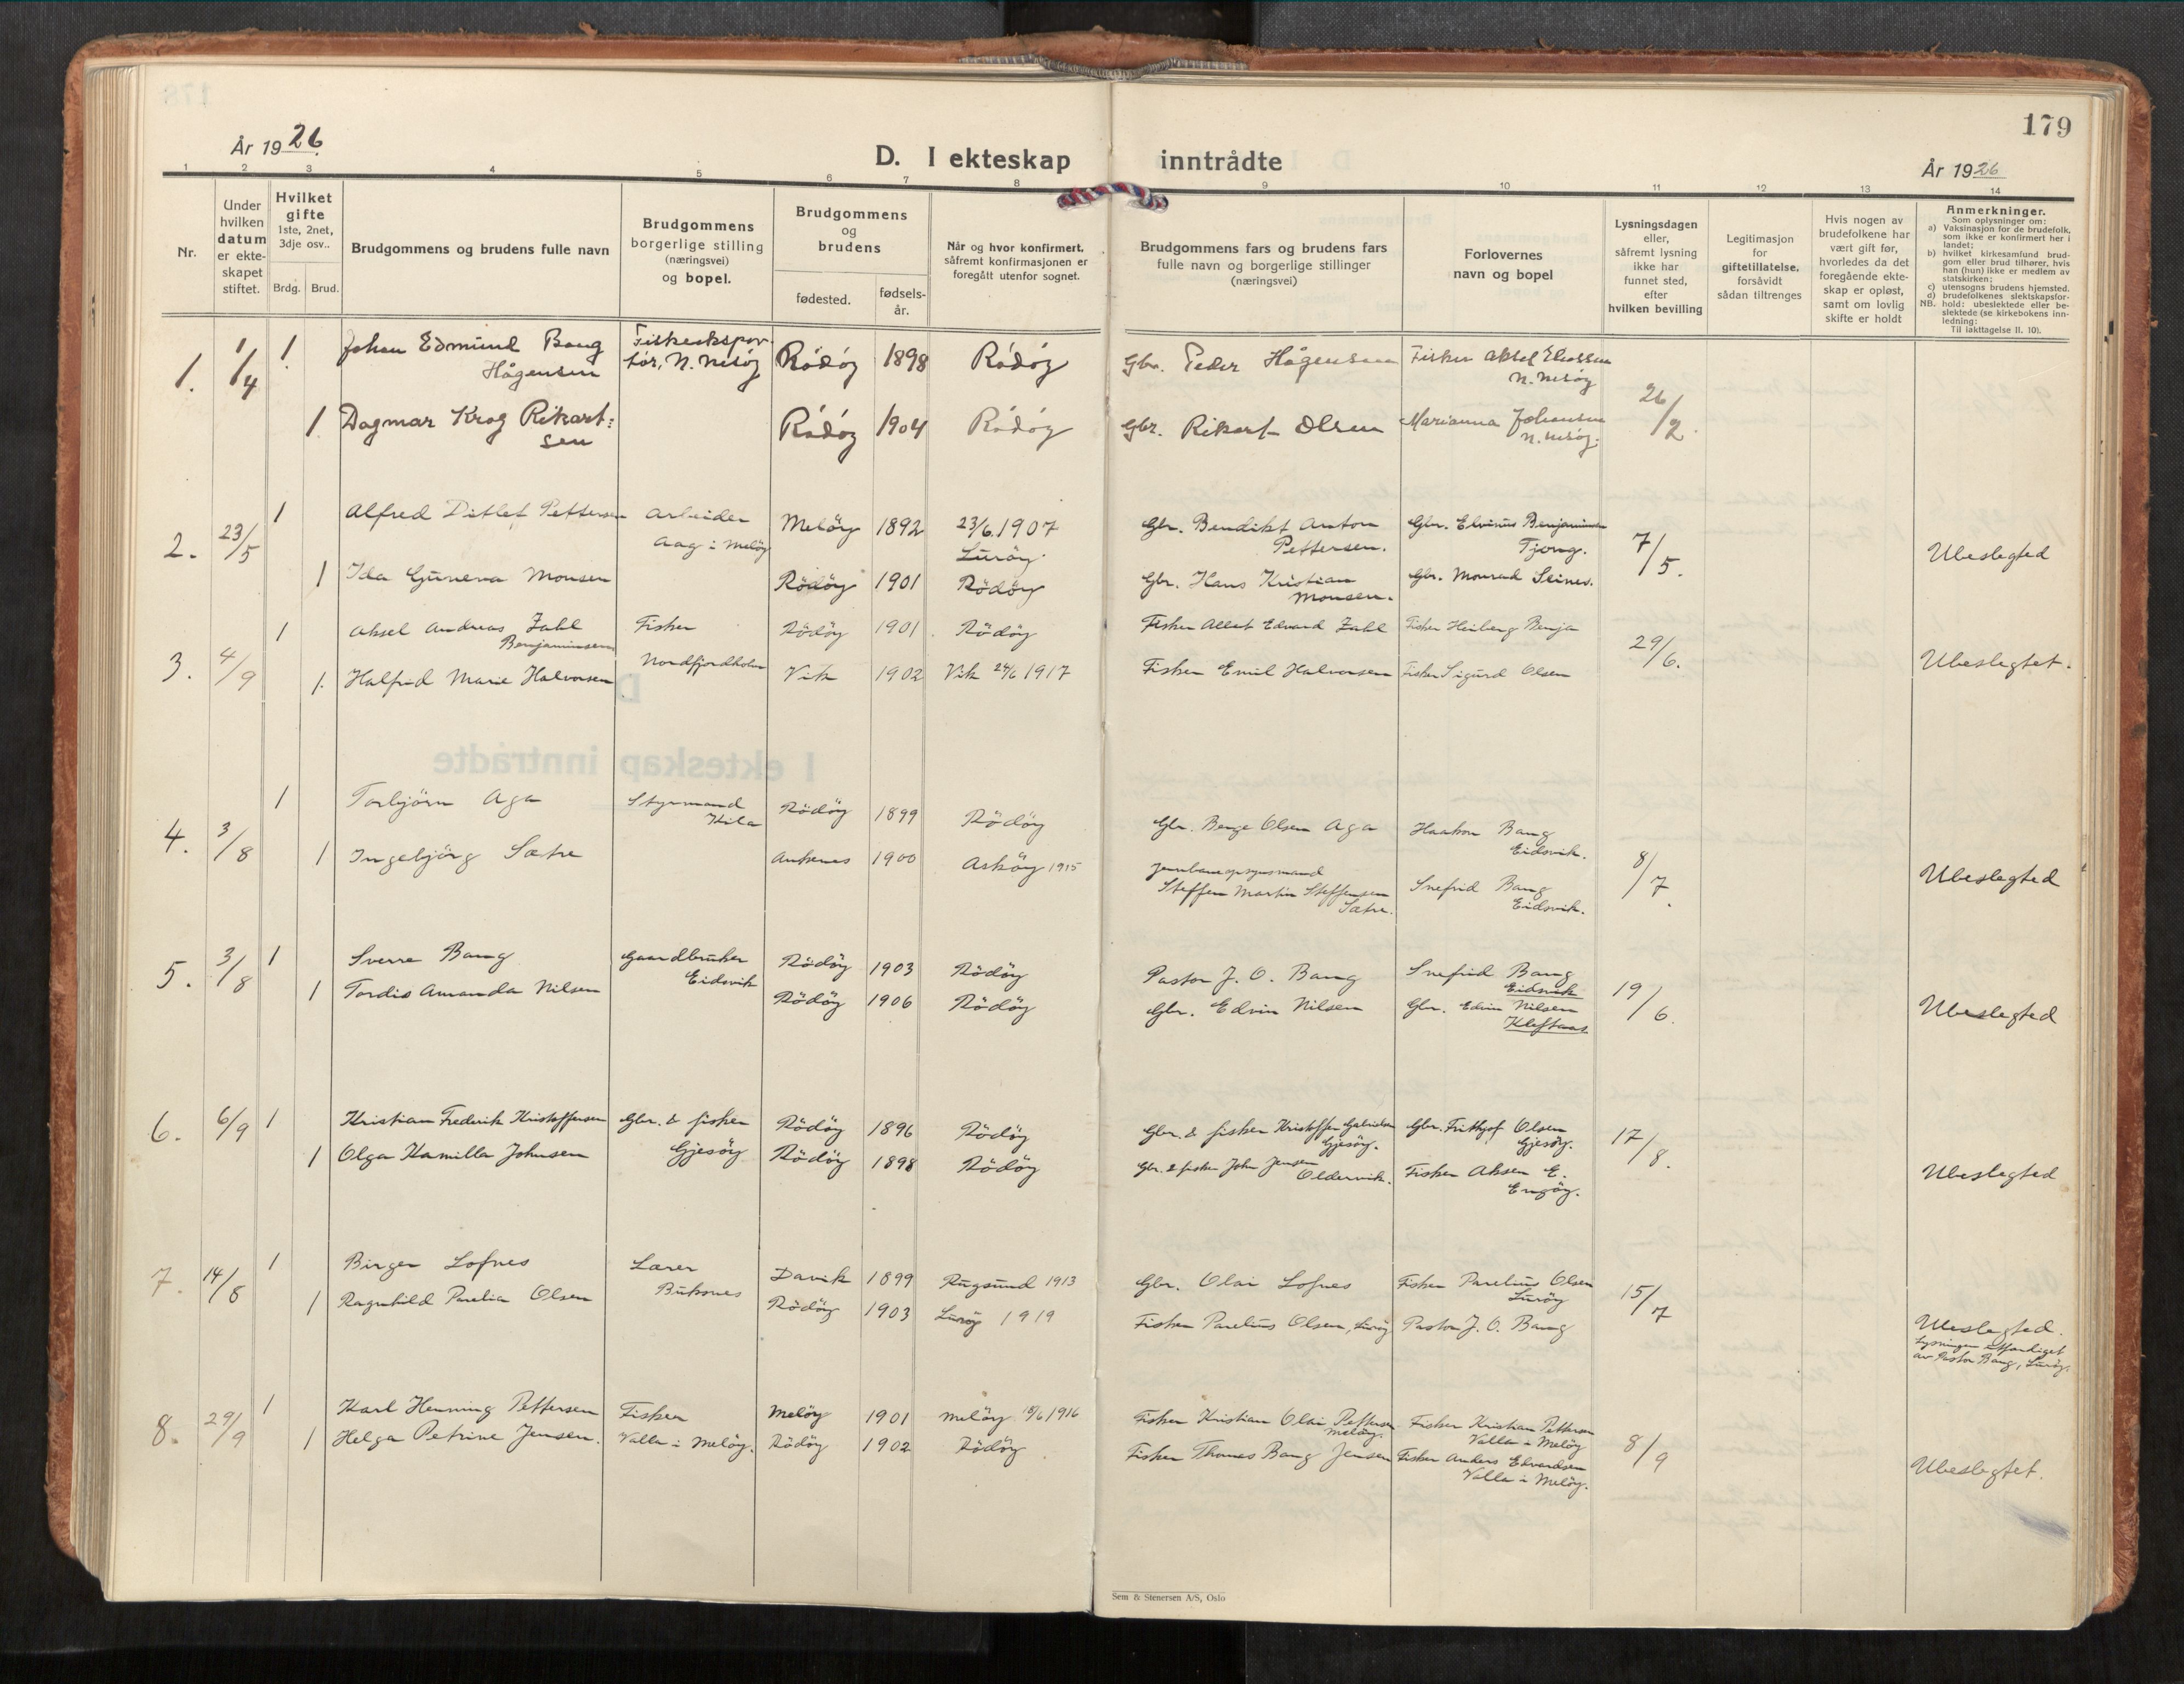 179
År 1926.
D. I ekteskap inntrådte
År 1926
1 2 3 4 5 6 7 8 9 10 11 12 13 14
Nr.
Under
hvilken
datum
er ekte-
skapet
stiftet.
Hvilket
gifte
1ste, 2net,
3dje osv..
Brdg. Brud.
Brudgommens og brudens fulle navn
Brudgommens
borgerlige stilling
(næringsvei)
og bopel.
Brudgommens
og
brudens
fødested.
fødsels-
år.
Når og hvor konfirmert,
såfremt konfirmasjonen er
foregått utenfor sognet.
Brudgommens fars og brudens fars
fulle navn og borgerlige stillinger
(næringsvei)
Forlovernes
navn og bopel
Lysningsdagen
eller,
såfremt lysning
ikke har
funnet sted,
efter
hvilken bevilling
Legitimasjon
for
giftetillatelse,
forsåvidt
sådan tiltrenges
Hvis nogen av
brudefolkene har
vært gift før,
hvorledes da det
foregående ekte-
skap er opløst,
samt om lovlig
skifte er holdt
Anmerkninger.
Som oplysninger om:
a) Vaksinasjon for de brudefolk,
som ikke er konfirmert her i
landet;
b) hvilket kirkesamfund brud-
gom eller brud tilhører, hvis
han (hun) ikke er medlem av
statskirken;
c) utensogns brudens hjemsted.
d) brudefolkenes slektskapsfor-
NB. hold: ubeslektede eller be-
slektede (se kirkebokens inn-
ledning:
Til iakttagelse II. 10).
1. 1/4 1 Johan Edmund Bang
Hågensen
Fiskeekspor-
tør, N. Nesøy
Rødøy 1898 Rødøy
Gbr. Peder Hågensen
Fisker Aksel Eliassen
N. Nesøy
26/2.
1 Dagmar Krog Rikart-
sen
Rødøy 1904 Rødøy
Gbr. Rikart Olsen
Marianna Johansen
N. Nesøy.
2. 23/5 1 Alfred Ditlef Pettersen
Arbeider
Aag i Meløy
Meløy 1892 23/6.1907
Lurøy
Gbr. Bendikt Anton
Pettersen.
Gbr. Elvinus Benjaminsen
Tjong.
7/5.
Ubeslegted
1 Ida Guneva Monsen
Rødøy 1901 Rødøy
Gbr. Hans Kristian
Monsen.
Gbr. Monrad Seines.
3. 4/9 1 Aksel Andreas Zahl
Benjaminsen
Fisker
Nordfjordholm
Rødøy 1901 Rødøy
Fisker Edvard Zahl
Fisker Heiberg Benja
29/6.
Ubeslegtet.
1. Halfrid Marie Halvorsen
Vik 1902 Vik 24/6 1917
Fisker Emil Halvorsen
Fisker Sigurd Olsen
4. 3/8 1 Torbjørn Aga
Styrmand
Kila
Rødøy 1899 Rødøy
Gbr. Berge Olsen Aga
Haakon Bang
Eidsvik.
8/7.
Ubeslegted
1 Ingebjørg Sætre
Ankenes 1900 Askøy 1915
Jernbaneopsynsmand
Steffen Martin Steffensen
Sætre.
Snefrid Bang
Eidsvik.
5. 3/8 1 Sverre Bang
Gaardbruker
Eidsvik
Rødøy 1903 Rødøy
Pastor J. O. Bang
Snefrid Bang
Eidsvik
19/6.
Ubeslegted
1 Tordis Amanda Nilsen
Rødøy 1906 Rødøy
Gbr. Edvin Nilsen
Gbr. Edvin Nilsen
Kleftaas
6. 6/9 1 Kristian Frederik Kristoffersen
Gbr. & fisker
Gjesøy
Rødøy 1896 Rødøy
Gbr. & fisker Kristoffer Gabrielsen
Gjesøy.
Gbr. Frithjof Olsen
Gjesøy.
17/8.
Ubeslegted
1 Olga Kamilla Johnsen
Rødøy 1898 Rødøy
Gbr. & fisker John Jensen
Oldervik.
Fisker Aksen E.
Engøy.
7. 14/8 1 Birger Lofnes
Lærer
Buksnes
Davik 1899 Rugsund 1913
Gbr. Olai Lofnes
Fisker Parelius Olsen
Lurøy
15/7
Ubeslegted.
Lysningen utfærdiget
av Pastor Bang, Lurøy.
1 Ragnhild Parelia Olsen
Rødøy 1903 Lurøy 1919
Fisker Parelius Olsen, Lurøy
Pastor J. O. Bang
8. 29/9 1 Karl Henning Pettersen
Fisker
Valla i Meløy.
Meløy 1901 Meløy 18/6 1916
Fisker Kristian Olai Pettersen
Meløy.
Fisker Kristian Pettersen
Valla i Meløy
8/9
Ubeslegtet.
1 Helga Petrine Jensen.
Rødøy 1902 Rødøy
Fisker Thomas Bang Jensen
Fisker Anders Edvardsen
Valla i Meløy.
Sem & Stenersen A/S, Oslo